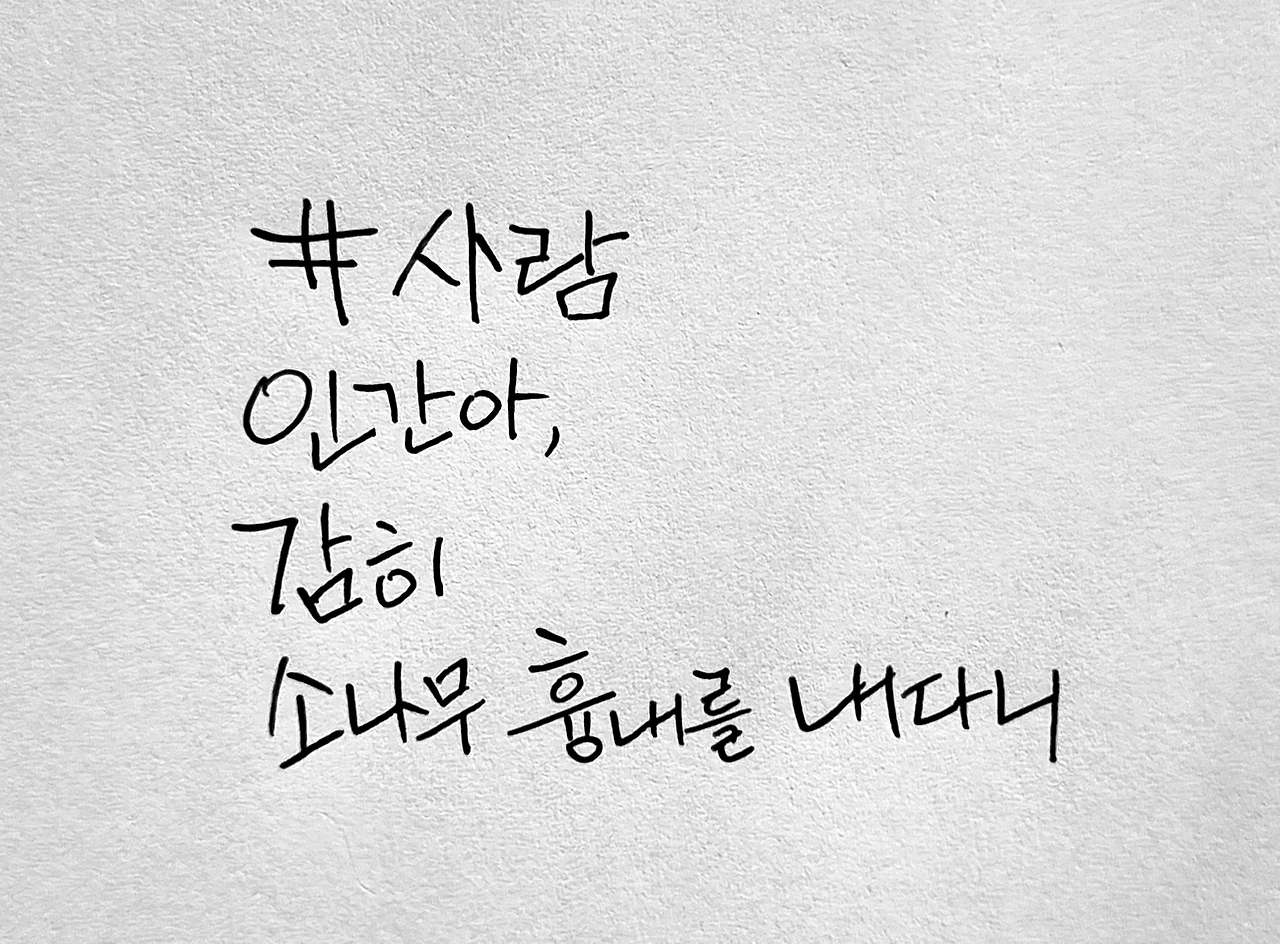 #사람
인간아,
감히
소나무 흉내를 내다니